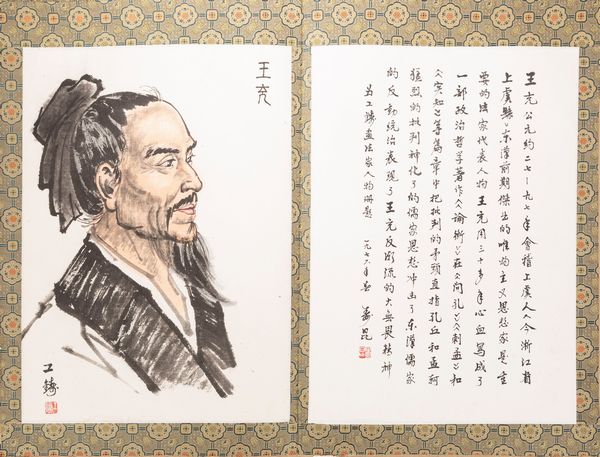 王充
工鑄
王充公元約二七—九七年會稽上虞人《今浙江省
上虞縣》東漢前期傑出的唯物主义思想家是重
要的法家代表人物王充用三十多年心血寫成了
一部政治哲学著作《論衡》在《问孔》《刺孟》和
《实知》等篇章中把批判的矛头直指孔丘和孟轲
猛烈的批判神化了的儒家思想冲击了东漢儒家
的反動统治表现了王充反潮流的大無畏精神
工鑄画法家人物册题 一九七六年春